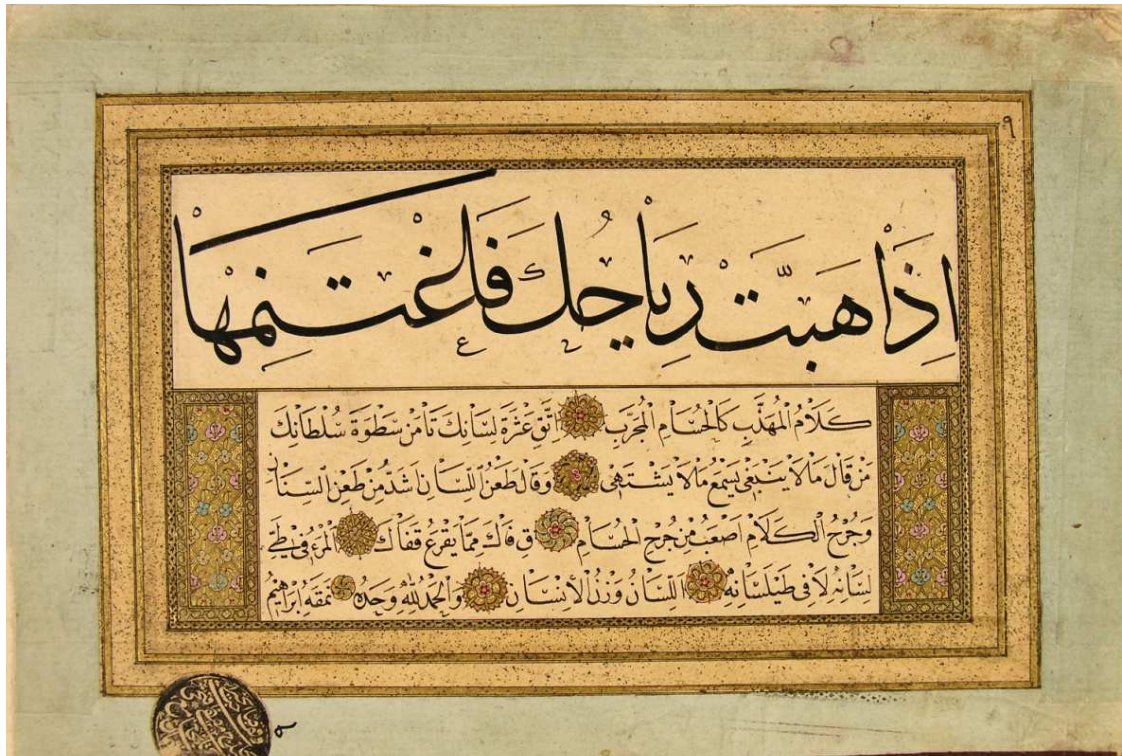 ٩
اِذَا هَبَّتْ رِيَاحُكَ فَاغْتَنِمْهَا
كَلَامُ الْمُهَذَّبِ كَالْحُسَامِ الْمُجَرَّبِ اِتَّقِ عَثْرَةَ لِسَانِكَ تَأْمَنْ سَطْوَةَ سُلْطَانِكَ
مَنْ قَالَ مَالَا يَنْبَغِى يَسْمَعُ مَالَا يَشْتَهِى وَقَالَ طَعْنُ اللِّسَانِ اَشَدُّ مِنْ طَعْنِ السِّنَانِ
وَجُرْحُ الْكَلَامِ اَصْعَبُ مِنْ جُرْحِ الْحُسَامِ قِ فَاكَ مِمَّا يَقْرَعُ قَفَاكَ اَلْمَرْءُ فِى طَىِّ
لِسَانِهِ لَا فِى طَيْلَسَانِهِ اَللِّسَانُ وَزْنُ الْاِنْسَانِ وَالْحَمْدُ لِلّٰهِ وَحْدَهُ نَمَقَهُ اِبْرَاهِيمُ